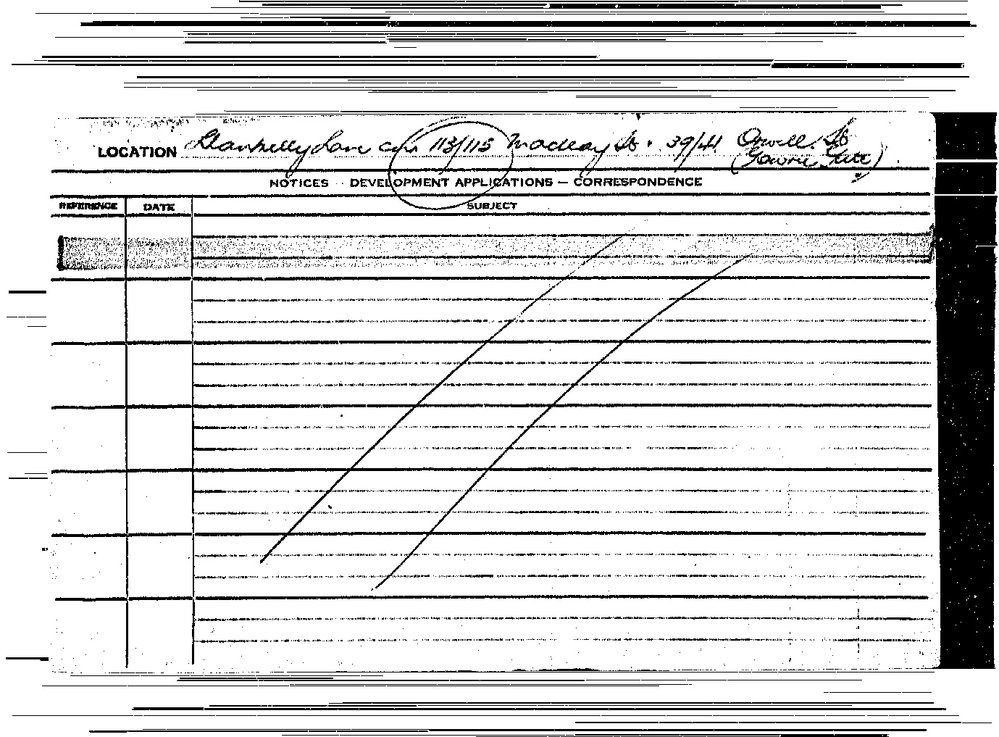 LOCATION Llankelly Lane cnr 113/115 Macleay St. 39/41 Orwell St
(Gowrie Gate)
NOTICES - DEVELOPMENT APPLICATIONS — CORRESPONDENCE
REFERENCE DATE SUBJECT